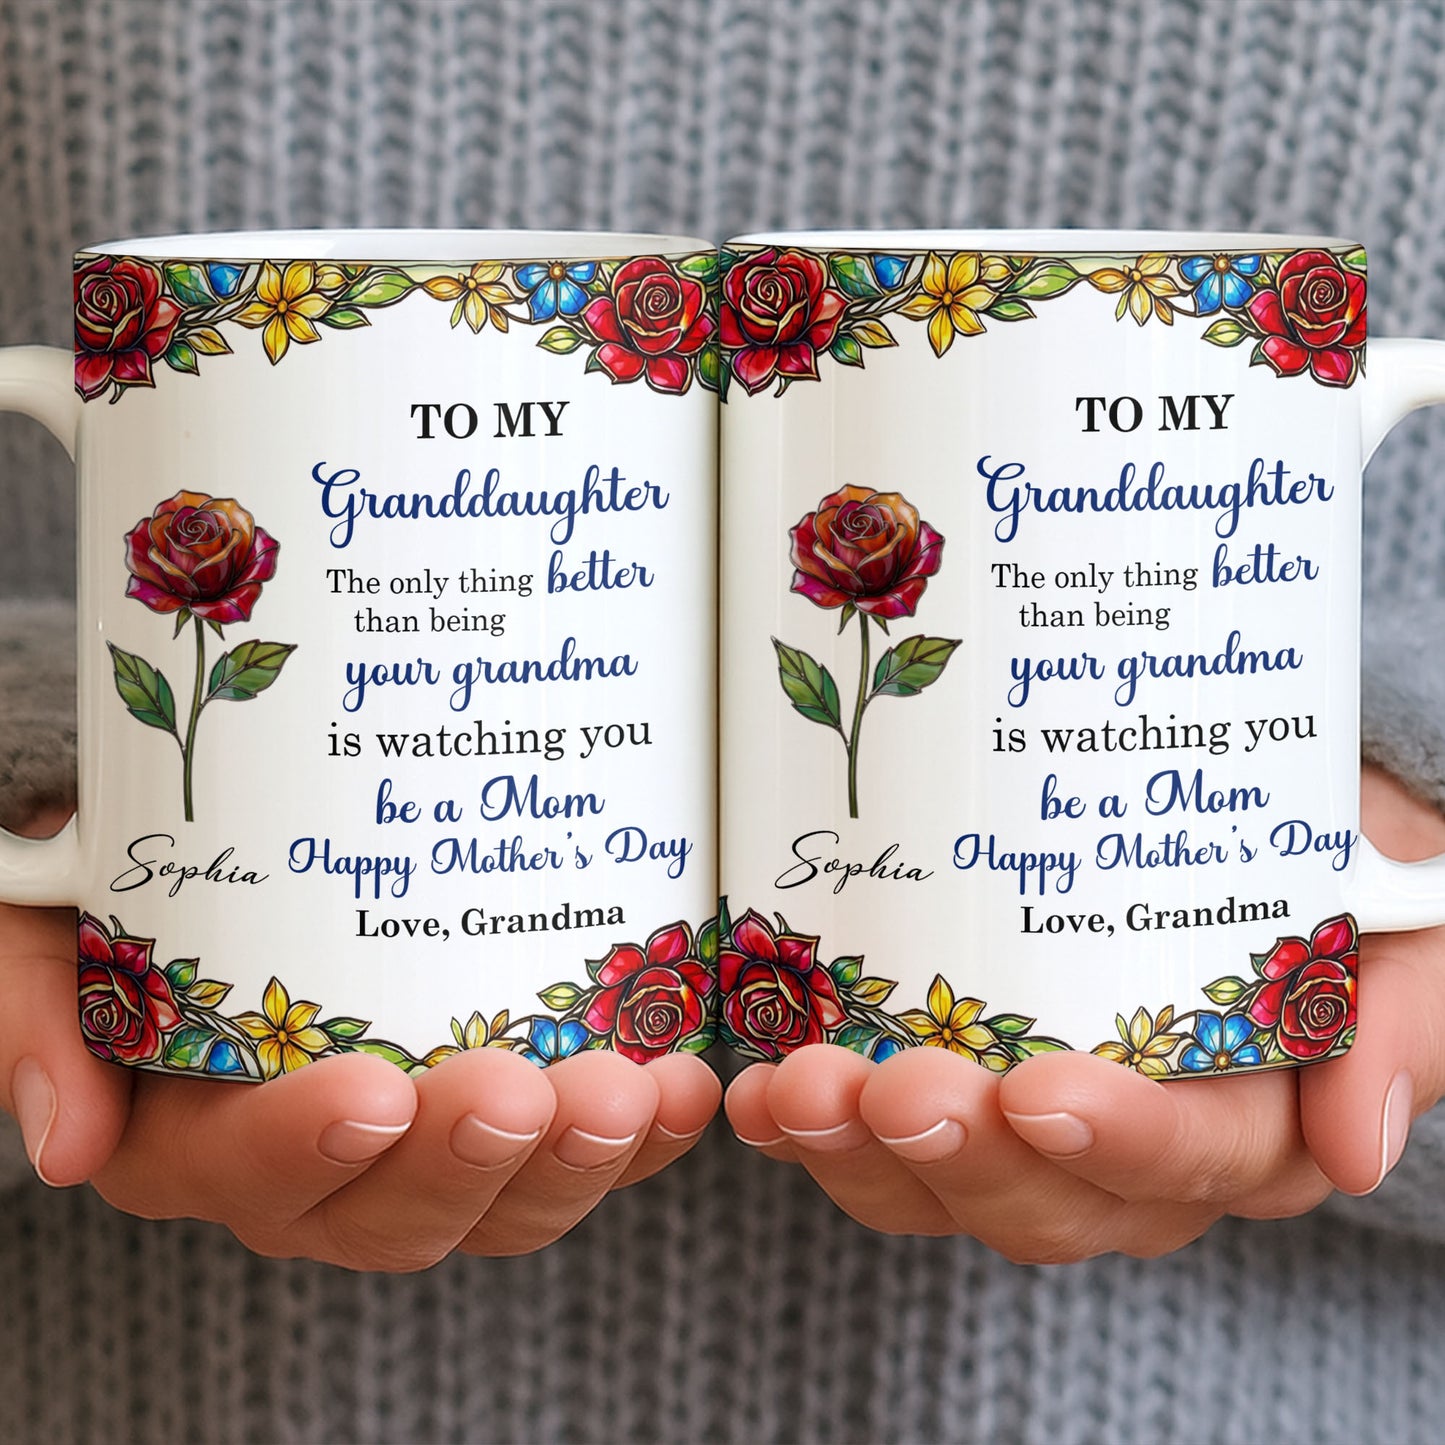 TO MY
Granddaughter
The only thing better
than being
your grandma
is watching you
be a Mom
Happy Mother's Day
Love, Grandma
Sophia
TO MY
Granddaughter
The only thing better
than being
your grandma
is watching you
be a Mom
Happy Mother's Day
Love, Grandma
Sophia